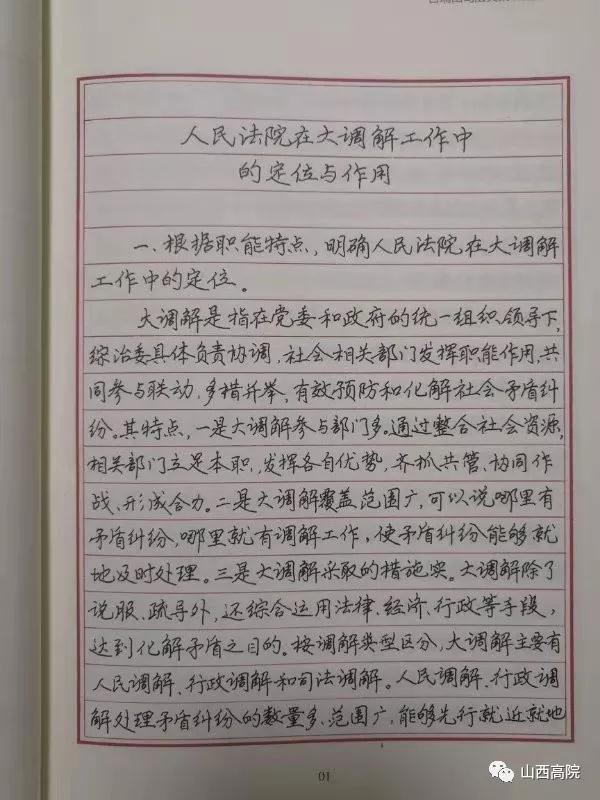 人民法院在大调解工作中
的定位与作用
一、根据职能特点，明确人民法院在大调解
工作中的定位。
大调解是指在党委和政府的统一组织领导下，
综治委具体负责协调，社会相关部门发挥职能作用，共
同参与联动，多措并举，有效预防和化解社会矛盾纠
纷。其特点，一是大调解参与部门多。通过整合社会资源，
相关部门立足本职，发挥各自优势，齐抓共管、协同作
战、形成合力。二是大调解覆盖范围广，可以说哪里有
矛盾纠纷，哪里就有调解工作，使矛盾纠纷能够就
地及时处理。三是大调解采取的措施实。大调解除了
说服、疏导外，还综合运用法律、经济、行政等手段，
达到化解矛盾之目的。按调解类型区分，大调解主要有
人民调解、行政调解和司法调解。人民调解、行政调
解处理矛盾纠纷的数量多、范围广，能够先行就近就地
01
山西高院